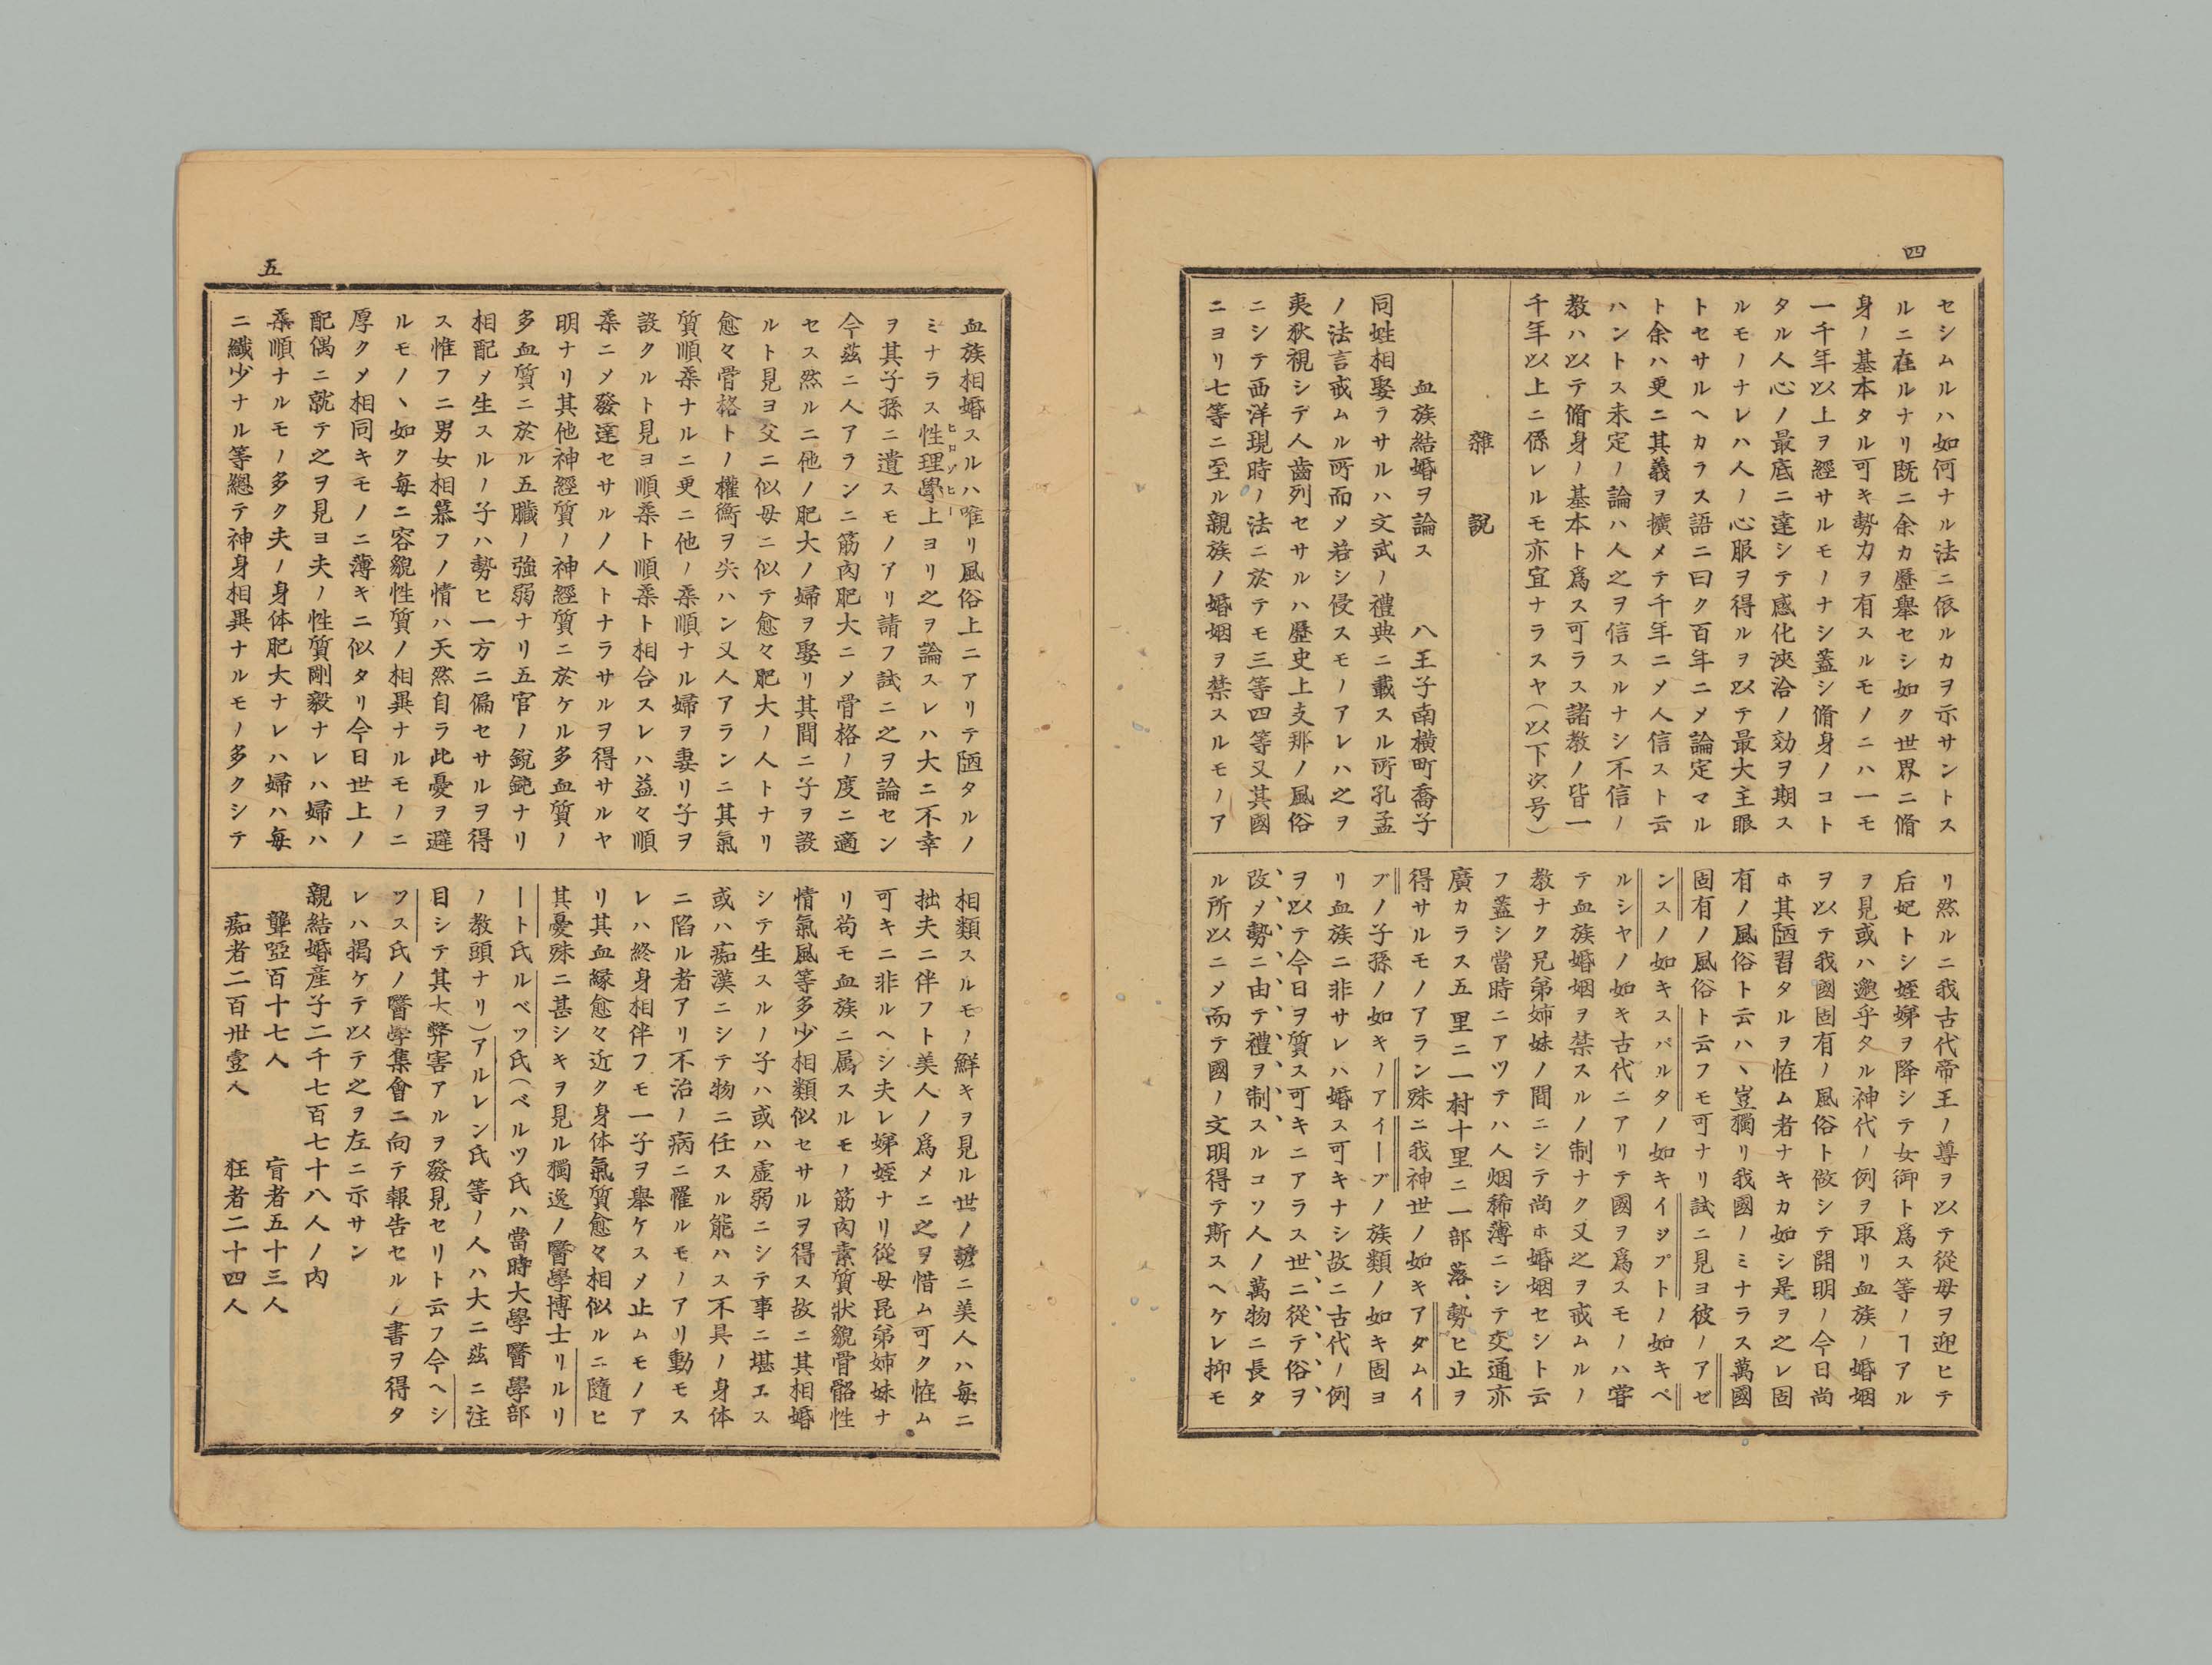 四
セシムルハ如何ナル法ニ依ルカヲ示サントス
ルニ在ルナリ既ニ余カ歷擧セシ如ク世界ニ脩
身ノ基本タル可キ勢力ヲ有スルモノニハ一モ
一千年以上ヲ經サルモノナシ蓋シ脩身ノコト
タル人心ノ最底ニ達シテ感化浹洽ノ効ヲ期ス
ルモノナレハ人ノ心服ヲ得ルヲ以テ最大主眼
トセサルヘカラス語ニ曰ク百年ニメ論定マル
ト余ハ更ニ其義ヲ擴メテ千年ニメ人信スト云
ハントス未定ノ論ハ人之ヲ信スルナシ不信ノ
教ハ以テ脩身ノ基本ト爲ス可ラス諸教ノ皆一
千年以上ニ係レルモ亦宜ナラスヤ(以下次号)
雜說
血族結婚ヲ論ス 八王子南横町喬子
同姓相娶ラサルハ文武ノ禮典ニ載スル所孔孟
ノ法言戒ムル所而メ若シ侵スモノアレハ之ヲ
夷狄視シテ人齒列セサルハ歷史上支那ノ風俗
ニシテ西洋現時ノ法ニ於テモ三等四等又其國
ニヨリ七等ニ至ル親族ノ婚姻ヲ禁スルモノア
リ然ルニ我古代帝王ノ尊ヲ以テ從母ヲ迎ヒテ
后妃トシ姪娣ヲ降シテ女御ト爲ス等ノヿアル
ヲ見或ハ邈乎タル神代ノ例ヲ取リ血族ノ婚姻
ヲ以テ我國固有ノ風俗ト做シテ開明ノ今日尚
ホ其陋習タルヲ恠ム者ナキカ如シ是ヲ之レ固
有ノ風俗ト云ハヽ豈獨リ我國ノミナラス萬國
固有ノ風俗ト云フモ可ナリ試ニ見ヨ彼ノアゼ
ンスノ如キスパルタノ如キイジプトノ如キペ
ルシヤノ如キ古代ニアリテ國ヲ爲スモノハ嘗
テ血族婚姻ヲ禁スルノ制ナク又之ヲ戒ムルノ
教ナク兄弟姉妹ノ間ニシテ尚ホ婚姻セシト云
フ蓋シ當時ニアツテハ人烟稀薄ニシテ交通亦
廣カラス五里ニ一村十里ニ一部落、勢ヒ止ヲ
得サルモノアラン殊ニ我神世ノ如キアダムイ
ブノ子孫ノ如キノアイーブノ族類ノ如キ固ヨ
リ血族ニ非サレハ婚ス可キナシ故ニ古代ノ例
ヲ以テ今日ヲ質ス可キニアラス世ニ從テ俗ヲ
改メ勢ニ由テ禮ヲ制スルコソ人ノ萬物ニ長タ
ル所以ニメ而テ國ノ文明得テ斯スヘケレ抑モ
五
血族相婚スルハ唯リ風俗上ニアリテ陋タルノ
ミナラス性理學上ヨリ之ヲ論スレハ大ニ不幸
ヲ其子孫ニ遺スモノアリ請フ試ニ之ヲ論セン
今茲ニ人アランニ筋肉肥大ニメ骨格ノ度ニ適
セス然ルニ他ノ肥大ノ婦ヲ娶リ其間ニ子ヲ設
ルト見ヨ父ニ似母ニ似テ愈々肥大ノ人トナリ
愈々骨格トノ權衡ヲ失ハン又人アランニ其氣
質順柔ナルニ更ニ他ノ柔順ナル婦ヲ妻リ子ヲ
設クルト見ヨ順柔ト順柔ト相合スレハ益々順
柔ニメ發達セサルノ人トナラサルヲ得サルヤ
明ナリ其他神經質ノ神經質ニ於ケル多血質ノ
多血質ニ於ル五臟ノ強弱ナリ五官ノ銳鈍ナリ
相配メ生スルノ子ハ勢ヒ一方ニ偏セサルヲ得
ス惟フニ男女相慕フノ情ハ天然自ラ此憂ヲ避
ルモノヽ如ク毎ニ容貌性質ノ相異ナルモノニ
厚クメ相同キモノニ薄キニ似タリ今日世上ノ
配偶ニ就テ之ヲ見ヨ夫ノ性質剛毅ナレハ婦ハ
柔順ナルモノ多ク夫ノ身体肥大ナレハ婦ハ毎
ニ纎少ナル等總テ神身相異ナルモノ多クシテ
ヒロソヒー
相類スルモノ鮮キヲ見ル世ノ諺ニ美人ハ毎ニ
拙夫ニ伴フト美人ノ爲メニ之ヲ惜ム可ク恠ム
可キニ非ルヘシ夫レ娣姪ナリ從母昆弟姉妹ナ
リ苟モ血族ニ属スルモノ筋肉素質狀貌骨骼性
情氣風等多少相類似セサルヲ得ス故ニ其相婚
シテ生スルノ子ハ或ハ虛弱ニシテ事ニ堪エス
或ハ痴漢ニシテ物ニ任スル能ハス不具ノ身体
ニ陷ル者アリ不治ノ病ニ罹ルモノアリ動モス
レハ終身相伴フモ一子ヲ擧ケスメ止ムモノア
リ其血緣愈々近ク身体氣質愈々相似ルニ隨ヒ
其憂殊ニ甚シキヲ見ル獨逸ノ醫學博士リルリ
ート氏ルベツ氏(ベルツ氏ハ當時大學醫學部
ノ教頭ナリ)アルレン氏等ノ人ハ大ニ茲ニ注
目シテ其大弊害アルヲ發見セリト云フ今ヘシ
ツス氏ノ醫學集會ニ向テ報告セルノ書ヲ得タ
レハ揭ケテ以テ之ヲ左ニ示サン
親結婚産子二千七百七十八人ノ内
聾啞百十七人 盲者五十三人
痴者二百卅壹人 狂者二十四人